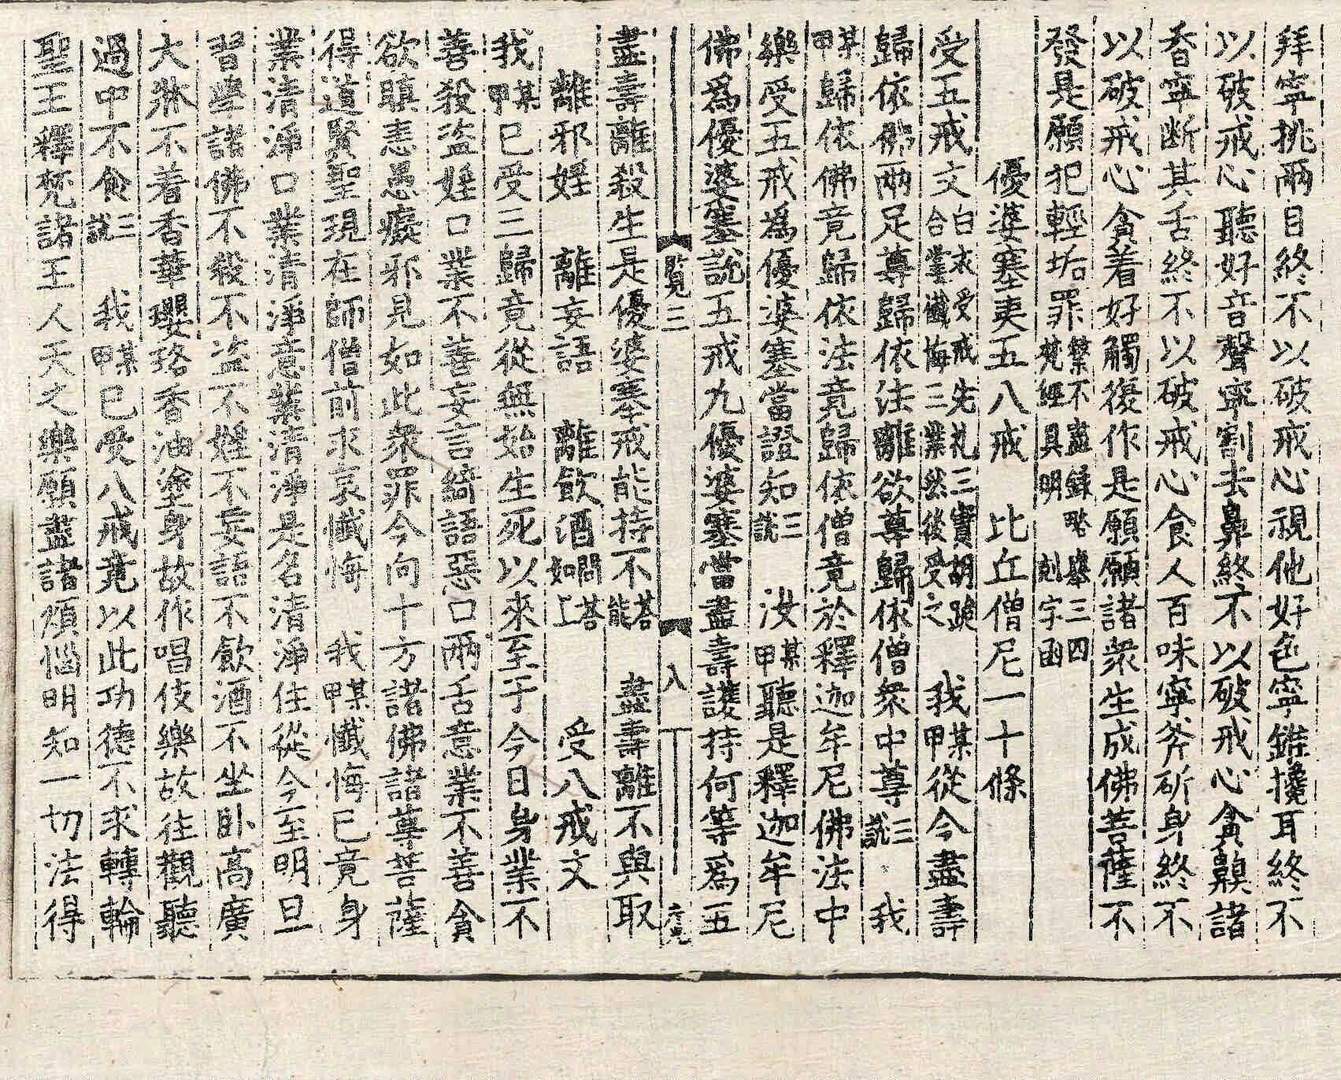 拜寧挑兩目終不以破戒心視他好色寧錐攙耳終不
以破戒心聽好音聲寧割去鼻終不以破戒心貪齅諸
香寧斷其舌終不以破戒心食人百味寧斧斫身終不
以破戒心貪着好觸復作是願願諸衆生成佛菩薩不
發是願犯輕垢罪繁不盡録略舉三四梵經具明 尅字函
優婆塞夷五八戒 比丘僧尼一十條
受五戒文白求受戒先礼三寶胡跪合掌懺悔三業然後受之 我某甲從今盡壽
歸依佛兩足尊歸依法離欲尊歸依僧衆中尊三說 我
某甲歸依佛竟歸依法竟歸依僧竟於釋迦牟尼佛法中
樂受五戒為優婆塞當證知三說 汝某甲聽是釋迦牟尼
佛為優婆塞說五戒九優婆塞當盡壽護持何等為五
覧三 八
盡壽離殺生是優婆塞戒能持不荅能 盡壽離不與取
離邪婬 離妄語 離飲酒問荅如上 受八戒文
我某甲已受三歸竟從無始生死以來至于今日身業不
善殺盗婬口業不善妄言綺語惡口兩舌意業不善貪
欲瞋恚愚癡邪見如此衆罪今向十方諸佛諸尊菩薩
得道賢聖現在師僧前求哀懺悔 我某甲懺悔已竟身
業清淨口業清淨意業清淨是名清淨住從今至明旦
習學諸佛不殺不盗不婬不妄語不飲酒不坐卧高廣
大牀不着香華瓔珞香油塗身故作唱伎樂故往觀聽
過中不食三說 我某甲已受八戒竟以此功德不求轉輪
聖王釋梵諸王人天之樂願盡諸煩惱明知一切法得